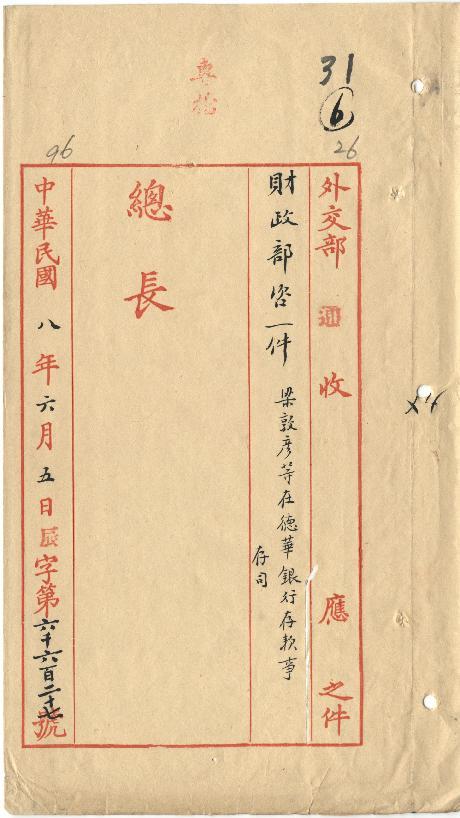 31
6
26
96
外交部 通 收 應 之件
財政部咨一件 梁敦彥等在德華銀行存款事
存司
總長
中華民國八年六月五日辰字第六千六百二十七號